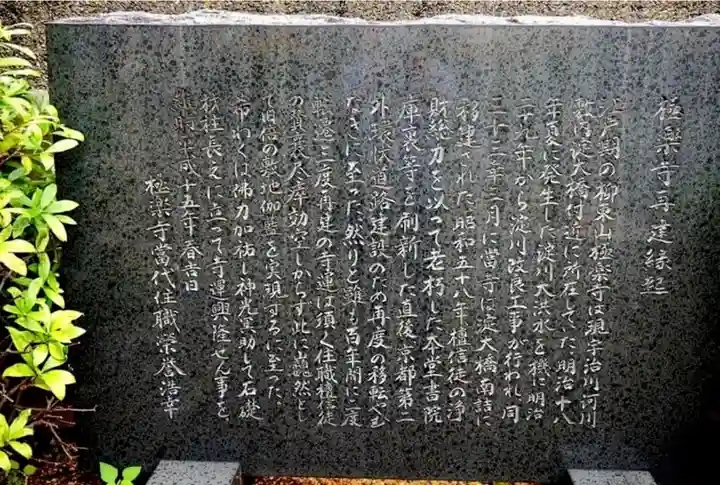 極楽寺再建縁起
江戸期の柳東山極楽寺は現宇治川河川
敷内淀大橋付近に所在していた 明治十八
年夏に発生した淀川大洪水を機に明治
二十九年から淀川改良工事が行われ 同
三十二年二月に当寺は淀大橋南詰に
移建された 昭和五十八年檀信徒の浄
財総力を以って老朽した本堂 書院
庫裏等を刷新した直後 京都第二
外環状道路建設のため再度の移転や
なきに至った 然りと雖も百年間に二度
の寺運は須く住職檀信徒
しからず此に巋然とし
て旧倍の敷地伽藍を実現するに至った
希わくは佛力加祐し神光冥助して石礎
柱長えに立って寺運興隆せん事を
平成十五年春吉日
極楽寺當代住職榮誉浩幸